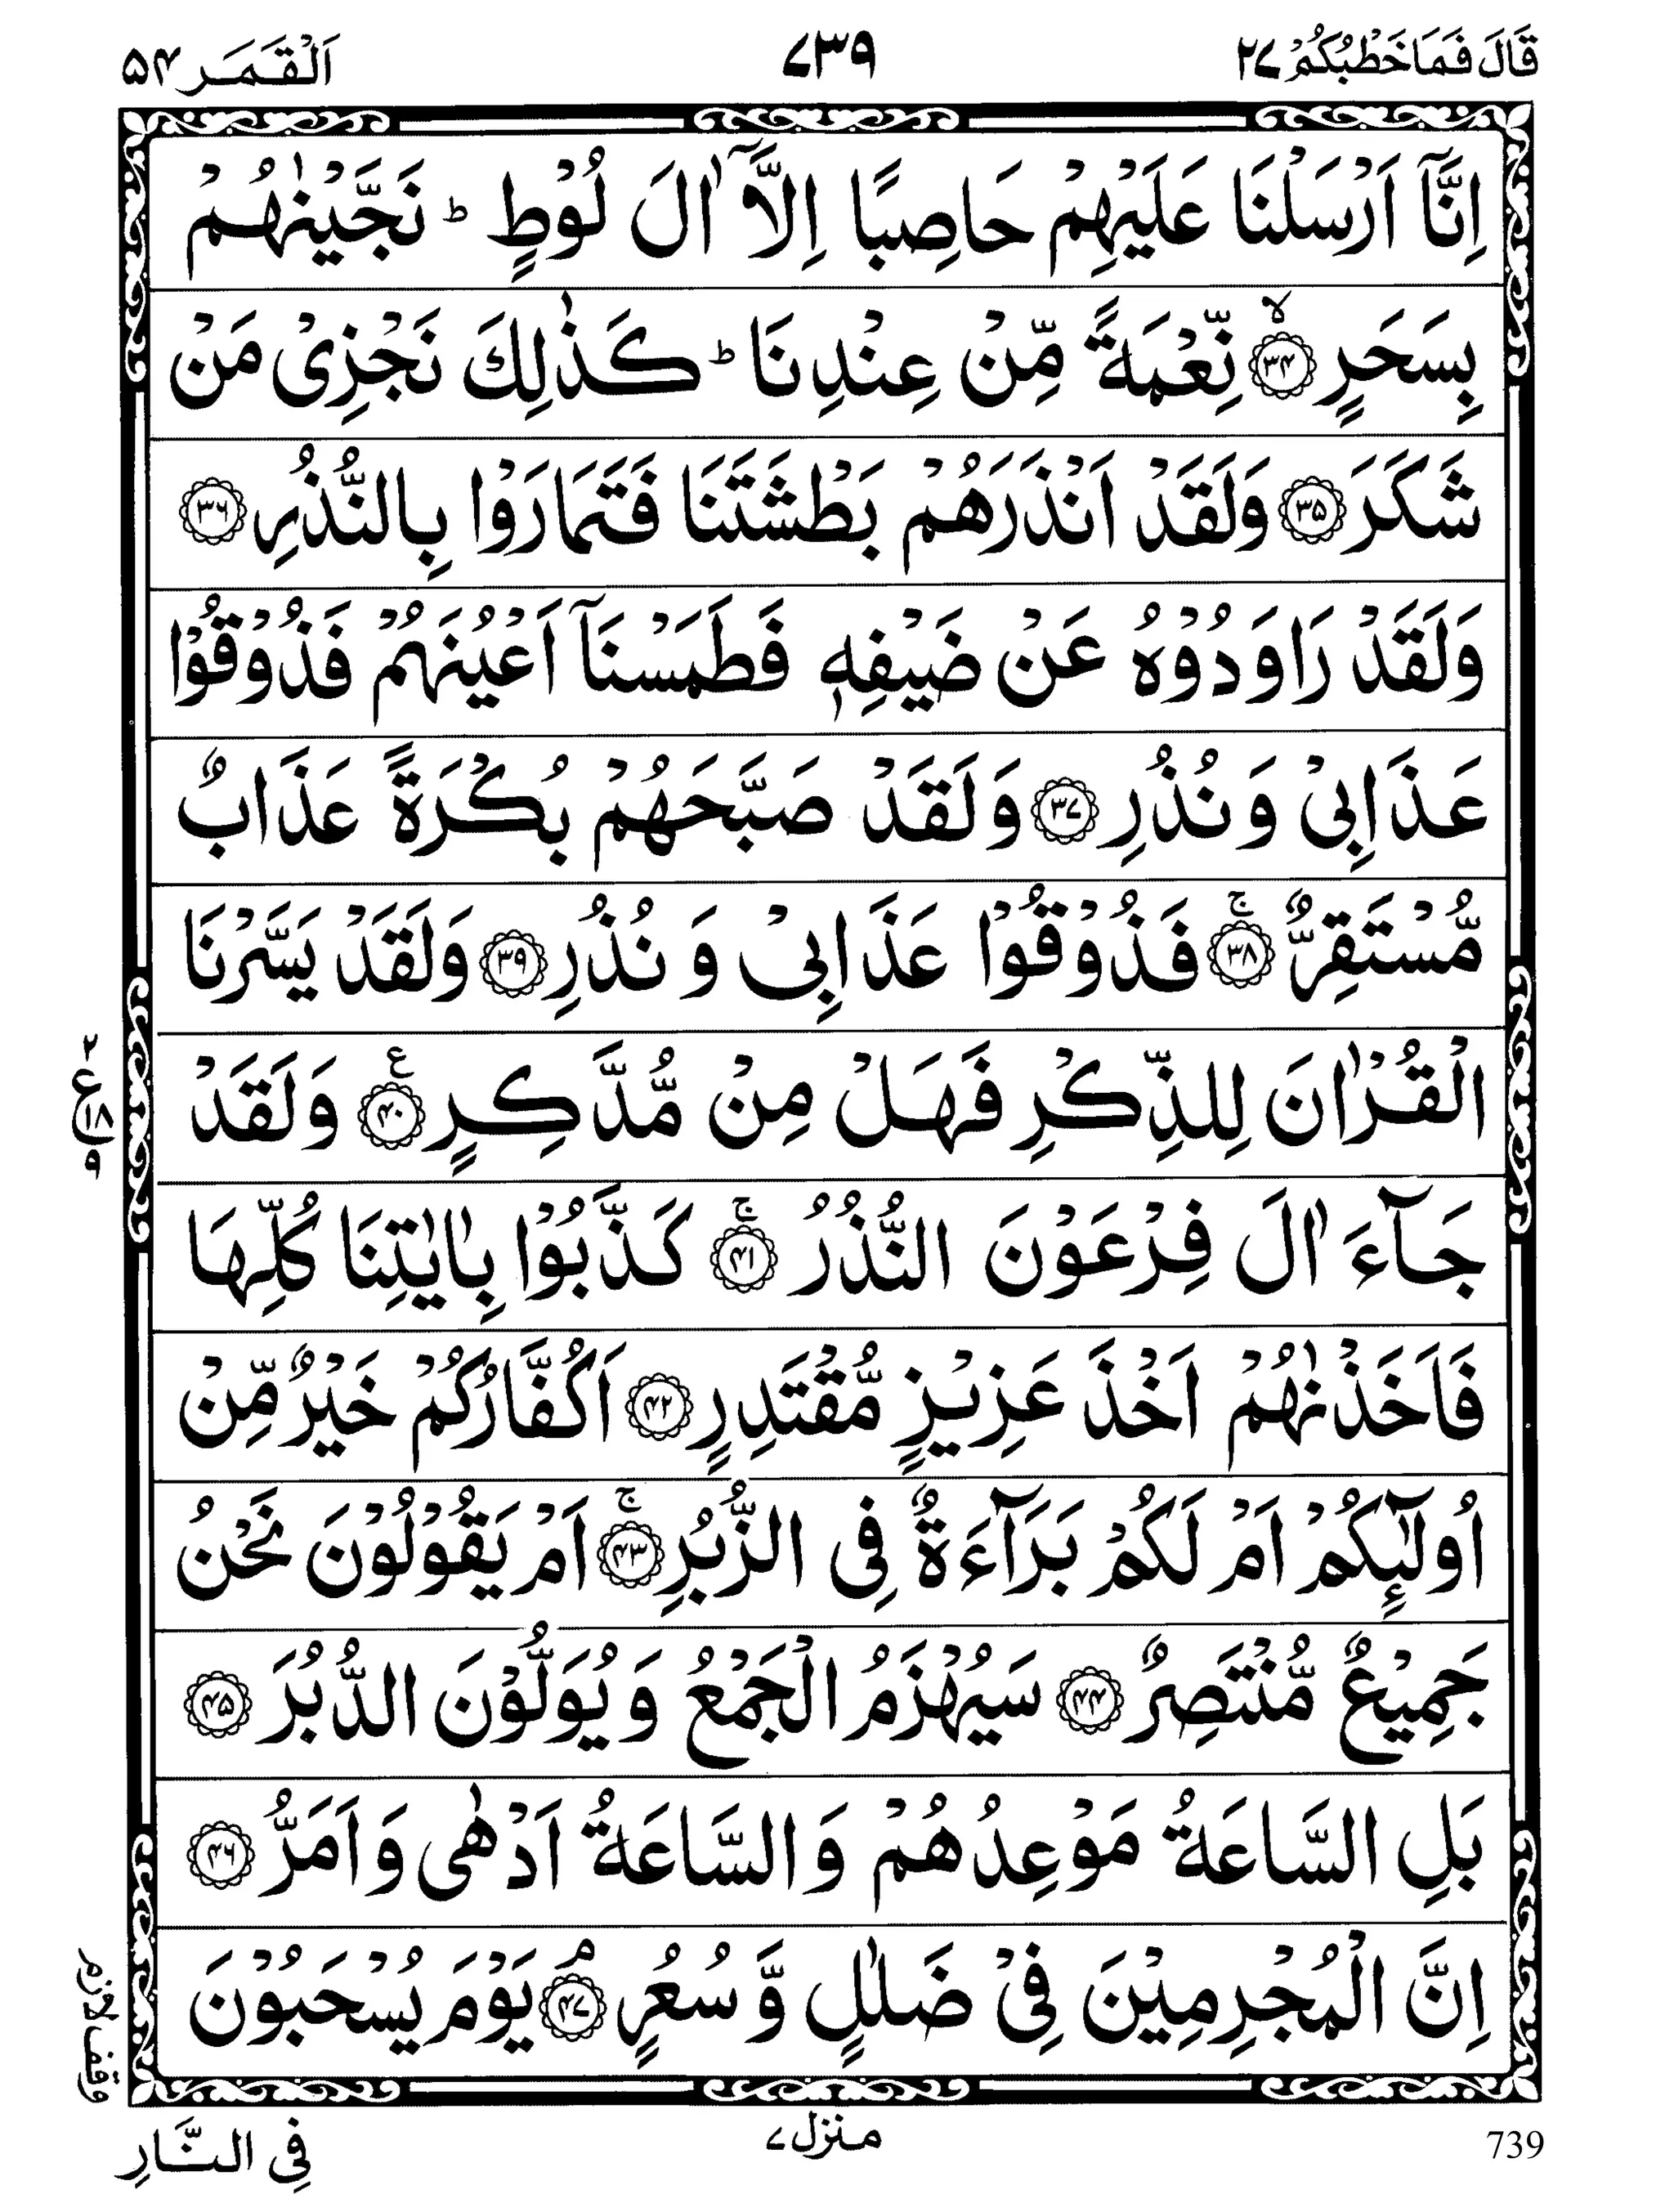 قَالَ فَمَا خَطْبُكُمْ ٢٧
٧٣٩
اَلْقَمَر ٥٤
اِنَّاۤ اَرْسَلْنَا عَلَيْهِمْ حَاصِبًا اِلَّاۤ اٰلَ لُوْطٍ ؕ نَجَّيْنٰهُمْ
بِسَحَرٍ ۙ‏﴿۳۴﴾ نِّعْمَةً مِّنْ عِنْدِنَا ؕ كَذٰلِكَ نَجْزِىْ مَنْ
شَكَرَ ﴿۳۵﴾ وَلَقَدْ اَنْذَرَهُمْ بَطْشَتَنَا فَتَمَارَوْا بِالنُّذُرِ ﴿۳۶﴾
وَلَقَدْ رَاوَدُوْهُ عَنْ ضَيْفِهٖ فَطَمَسْنَاۤ اَعْيُنَهُمْ فَذُوْقُوْا
عَذَابِىْ وَ نُذُرِ ﴿۳۷﴾ وَلَقَدْ صَبَّحَهُمْ بُكْرَةً عَذَابٌ
مُّسْتَقِرٌّ ۚ‏﴿۳۸﴾ فَذُوْقُوْا عَذَابِىْ وَ نُذُرِ ﴿۳۹﴾ وَلَقَدْ يَسَّرْنَا
الْقُرْاٰنَ لِلذِّكْرِ فَهَلْ مِنْ مُّدَّكِرٍ ﴿۴۰﴾ ع وَلَقَدْ
جَآءَ اٰلَ فِرْعَوْنَ النُّذُرُ ۚ‏﴿۴۱﴾ كَذَّبُوْا بِاٰيٰتِنَا كُلِّهَا
فَاَخَذْنٰهُمْ اَخْذَ عَزِيْزٍ مُّقْتَدِرٍ ﴿۴۲﴾ اَكُفَّارُكُمْ خَيْرٌ مِّنْ
اُولٰٓئِكُمْ اَمْ لَكُمْ بَرَآءَةٌ فِى الزُّبُرِ ۚ‏﴿۴۳﴾ اَمْ يَقُوْلُوْنَ نَحْنُ
جَمِيْعٌ مُّنْتَصِرٌ ﴿۴۴﴾ سَيُهْزَمُ الْجَمْعُ وَ يُوَلُّوْنَ الدُّبُرَ ﴿۴۵﴾
بَلِ السَّاعَةُ مَوْعِدُهُمْ وَالسَّاعَةُ اَدْهٰى وَ اَمَرُّ ﴿۴۶﴾
اِنَّ الْمُجْرِمِيْنَ فِىْ ضَلٰلٍ وَّ سُعُرٍ ۘ‏﴿۴۷﴾ يَوْمَ يُسْحَبُوْنَ
٢ ع ١٨ ٩
وقف لازم
فِى النَّارِ
منزل ٧
739